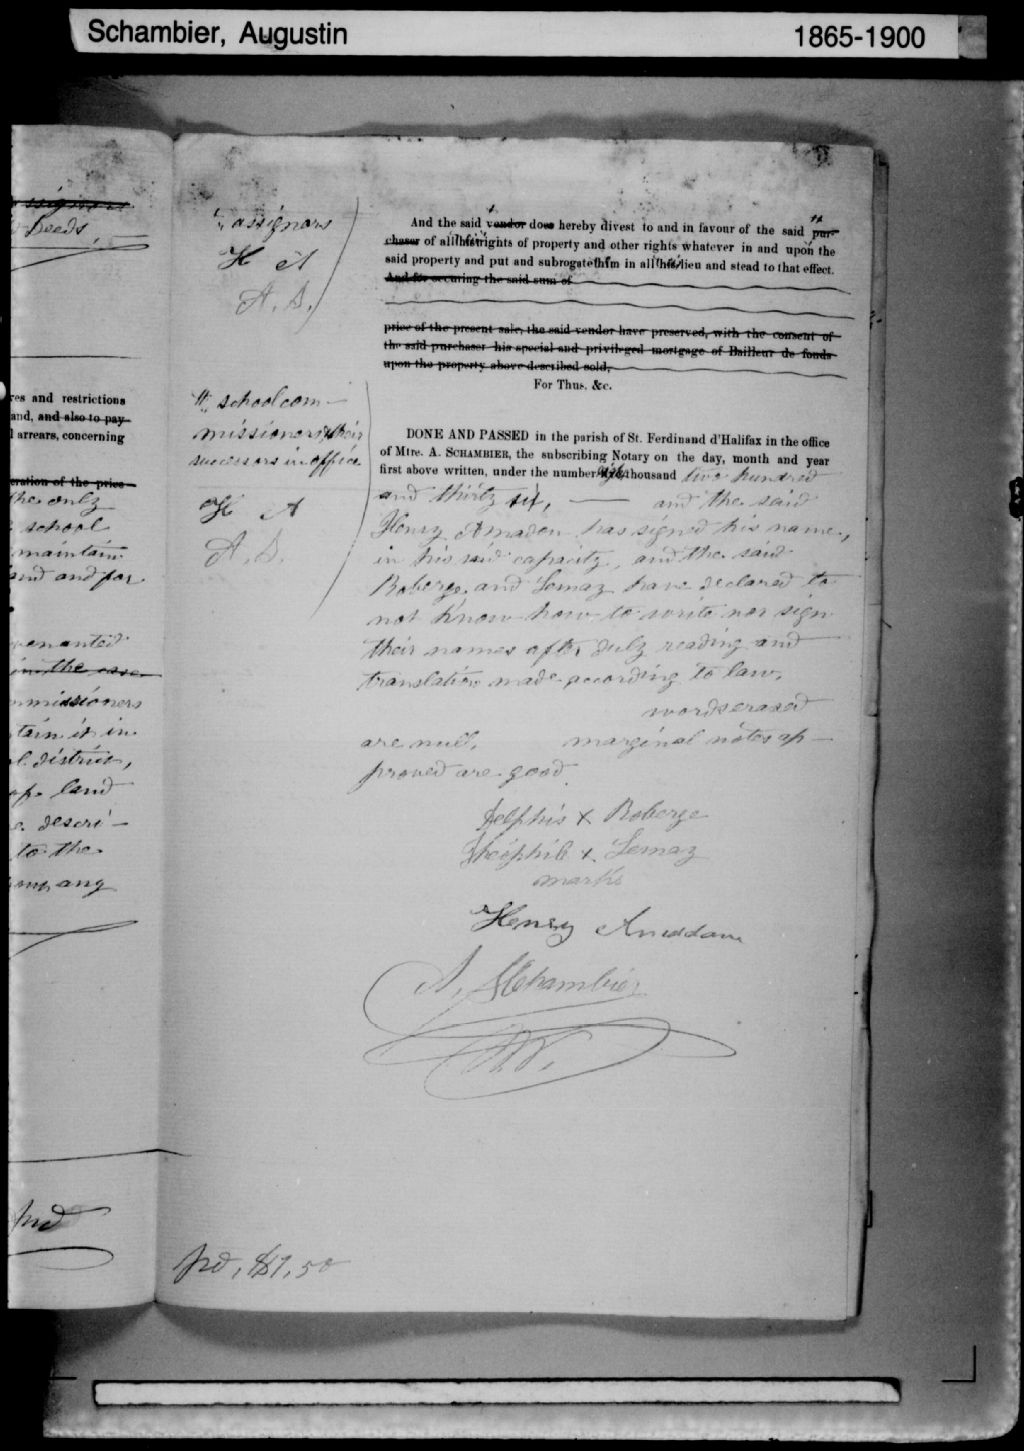 Schambier, Augustin
1865-1900
Deeds,
res and restrictions
and, and also to pay
l arrears, concerning
eration of the price
the only
school
maintain
land and for
venanted
in the case
mmissioners
tain it in
l district,
of land
e descri-
to the
company
assignors
H A
A. S.
tt school com-
missioners & their
successors in office
H A
A. S.
And the said vendor does hereby divest to and in favour of the said pur-
chaser of all his rights of property and other rights whatever in and upon the
said property and put and subrogate him in all his lieu and stead to that effect.
And for securing the said sum of
price of the present sale, the said vendor have preserved, with the consent of
the said purchaser his special and privileged mortgage of Bailleur de fonds
upon the property above described sold,
For Thus, &c.
DONE AND PASSED in the parish of St. Ferdinand d'Halifax in the office
of Mtre. A. SCHAMBIER, the subscribing Notary on the day, month and year
first above written, under the number thousand two hundred
and thirty six, and the said
Henry Amadon has signed his name,
in his said capacity, and the said
Roberge and Lemay have declared to
not know how to write nor sign
their names after duly reading and
translation made according to law.
words erased
are null, marginal notes ap-
proved are good.
Delphis x Roberge
Théophile x Lemay
marks
Henry Amaddon
A. Schambier
N.P.
pd, $1,50